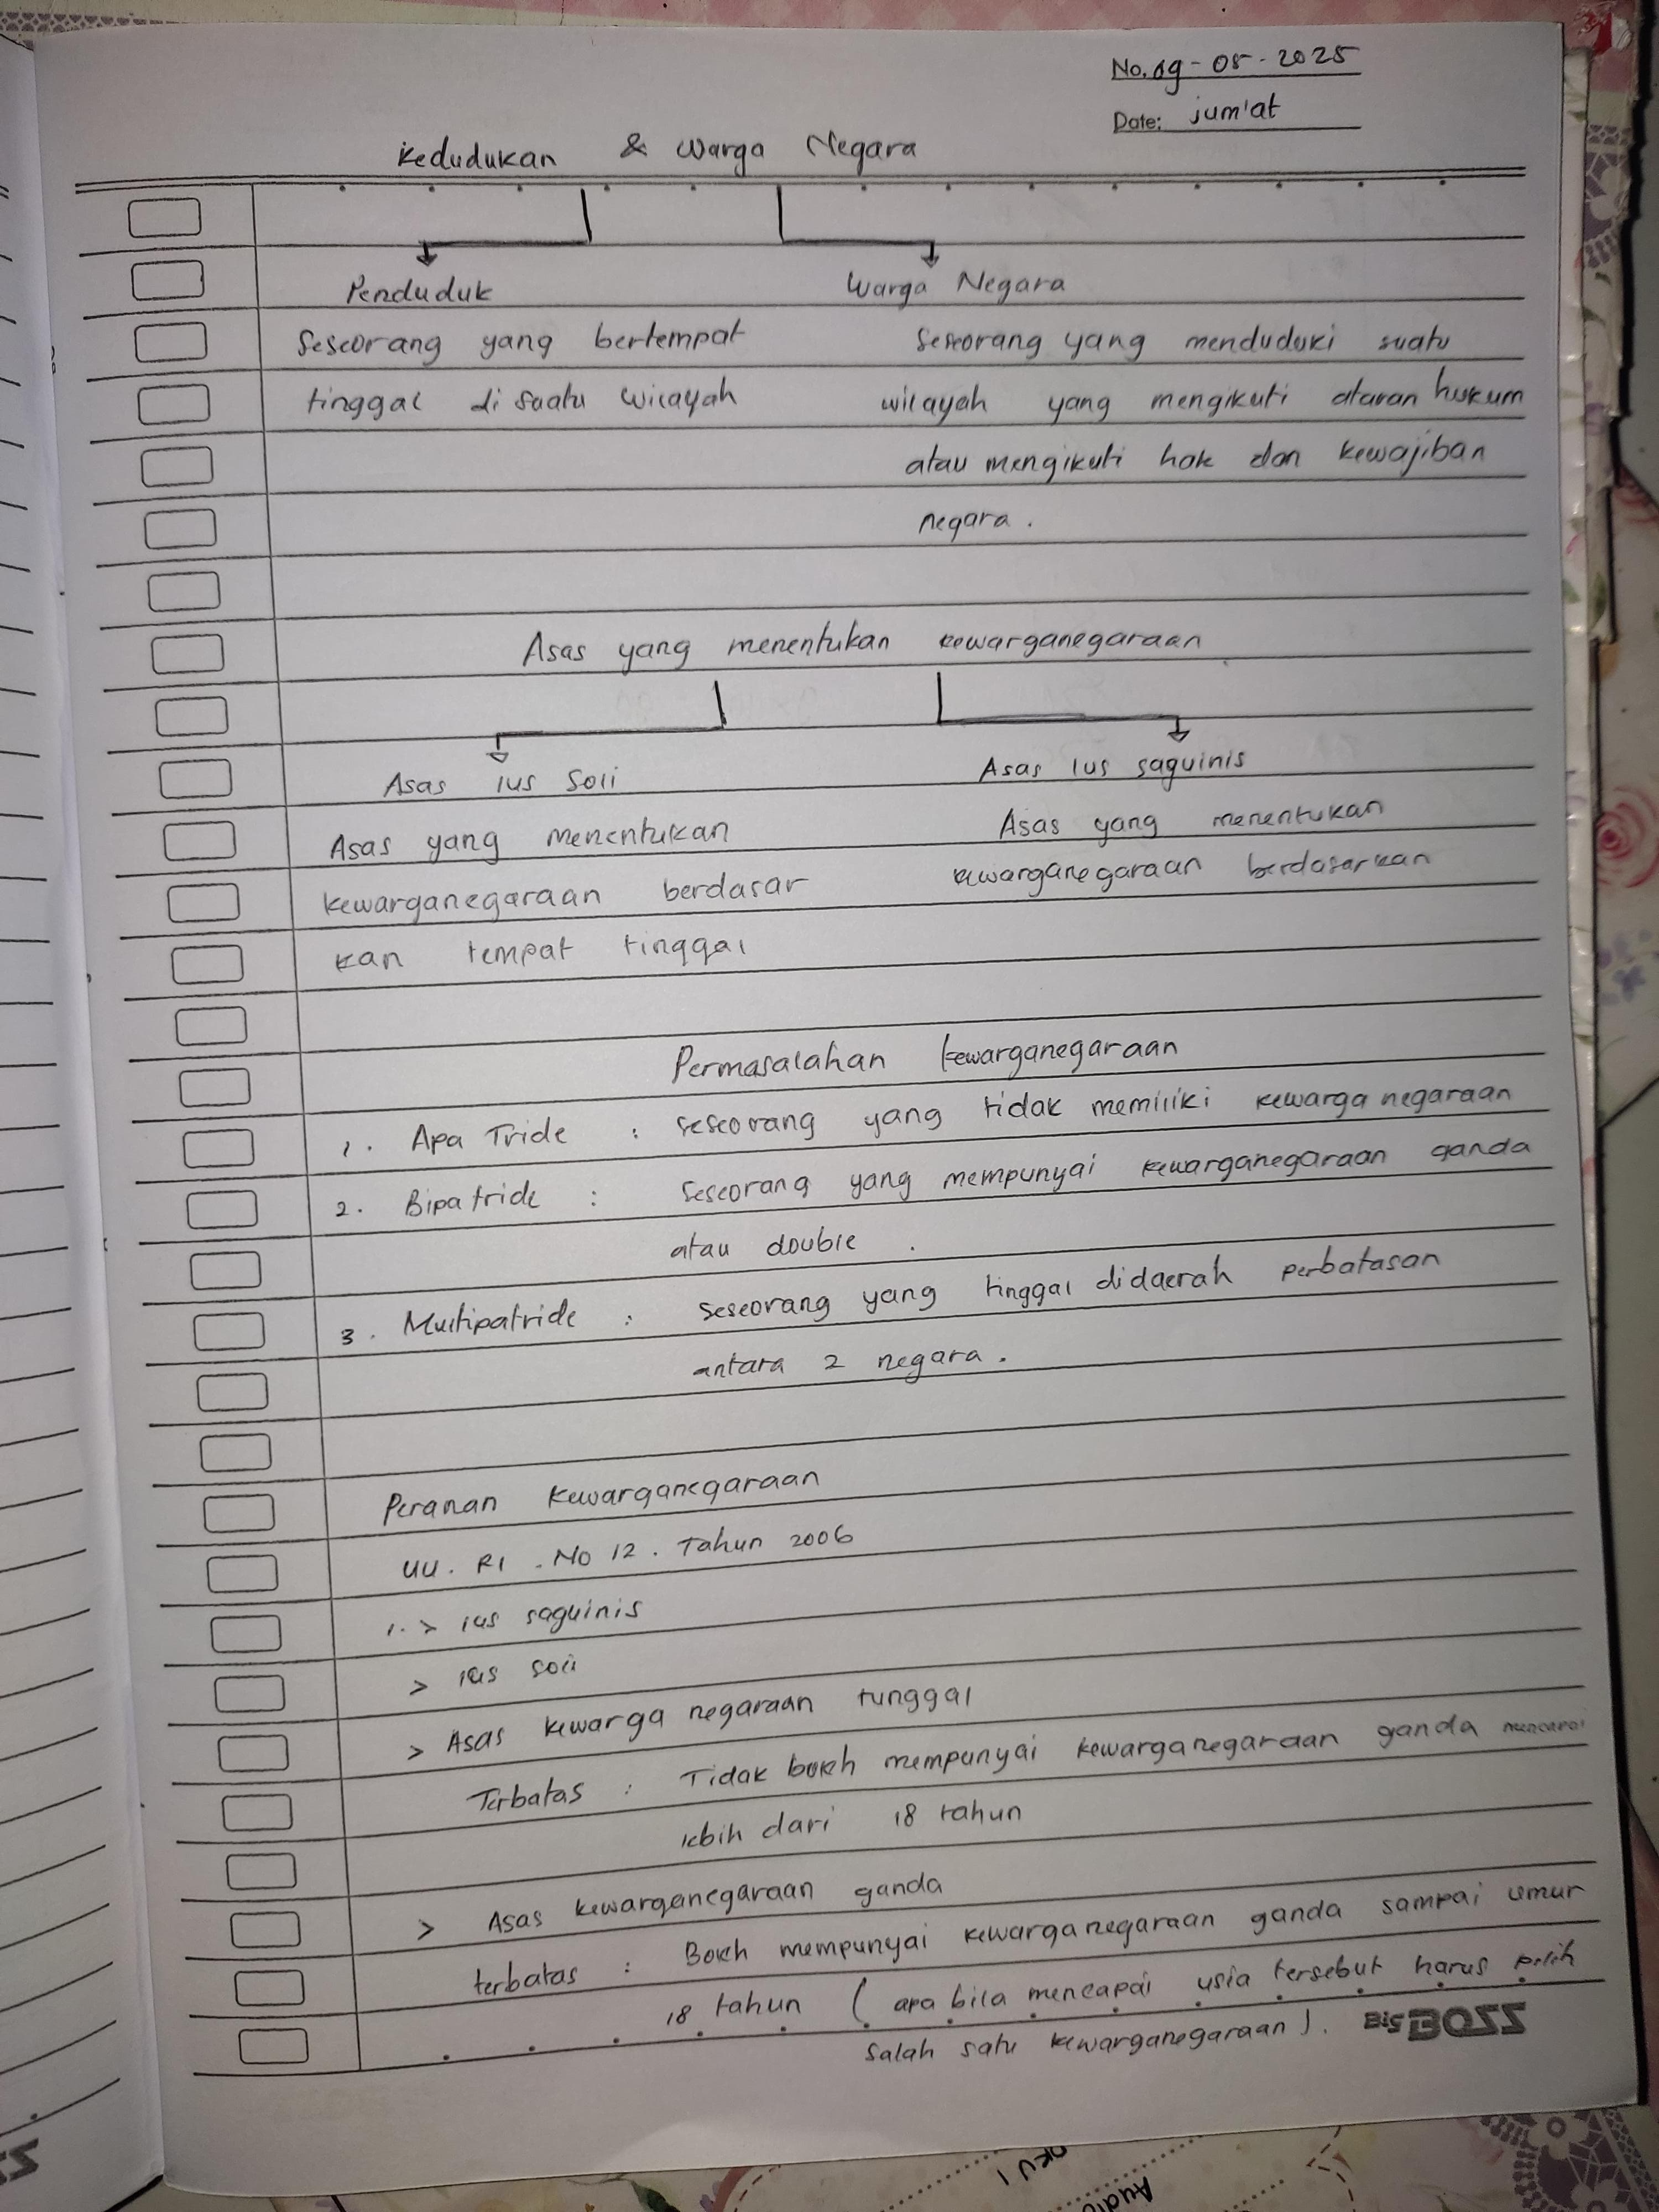 No. 09 - 05 - 2025
Date: jum'at
Kedudukan & Warga Negara
Penduduk
Warga Negara
Seseorang yang bertempat
tinggal di suatu wilayah
Seseorang yang menduduki suatu
wilayah yang mengikuti aturan hukum
atau mengikuti hak dan kewajiban
negara.
Asas yang menentukan kewarganegaraan
Asas ius soli
Asas yang menentukan
kewarganegaraan berdasar
kan tempat tinggal
Asas ius saguinis
Asas yang menentukan
kewarganegaraan berdasarkan
Permasalahan kewarganegaraan
1. Apa Tride : seseorang yang tidak memiliki kewarga negaraan
2. Bipatride : Seseorang yang mempunyai kewarganegaraan ganda
atau double.
3. Multipatride : Seseorang yang tinggal didaerah perbatasan
antara 2 negara.
Peranan Kewarganegaraan
UU. RI. No 12. Tahun 2006
1. > ius saguinis
> ius soli
> Asas kewarga negaraan tunggal
Terbatas : Tidak boleh mempunyai kewarganegaraan ganda mencapai
lebih dari 18 tahun
> Asas kewarganegaraan ganda
terbatas : Boleh mempunyai kewarganegaraan ganda sampai umur
18 tahun ( apa bila mencapai usia tersebut harus pilih
salah satu kewarganegaraan ).
Big BOSS
Audio